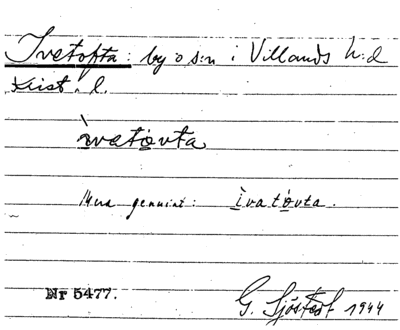 Ivetofta: by o s:n i Villands h:d
Krist. l.
ìvatòvta
Mera genuint: ìvatòvta.
Nr 5477. G. Sjöstedt 1944